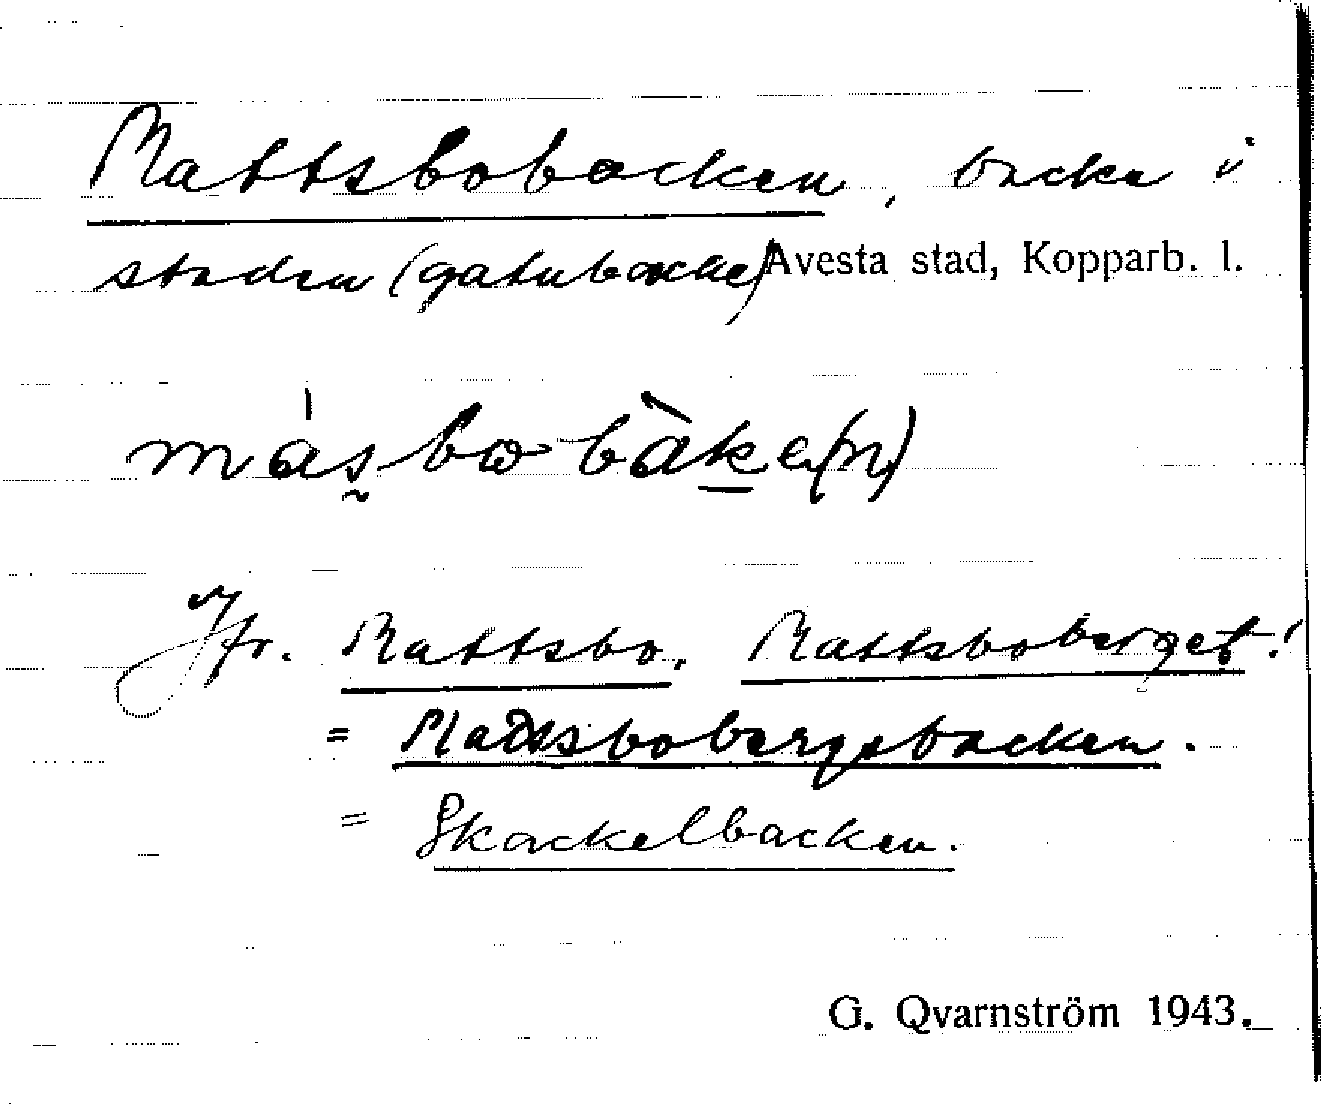 Mattsbobacken, backe i
staden (gatubacke) Avesta stad, Kopparb. l.
màs̰bobàke(n)
Jfr. Mattsbo, Mattsboberget!
= Mattsbobergsbacken.
= Skackelbacken.
G. Qvarnström 1943.